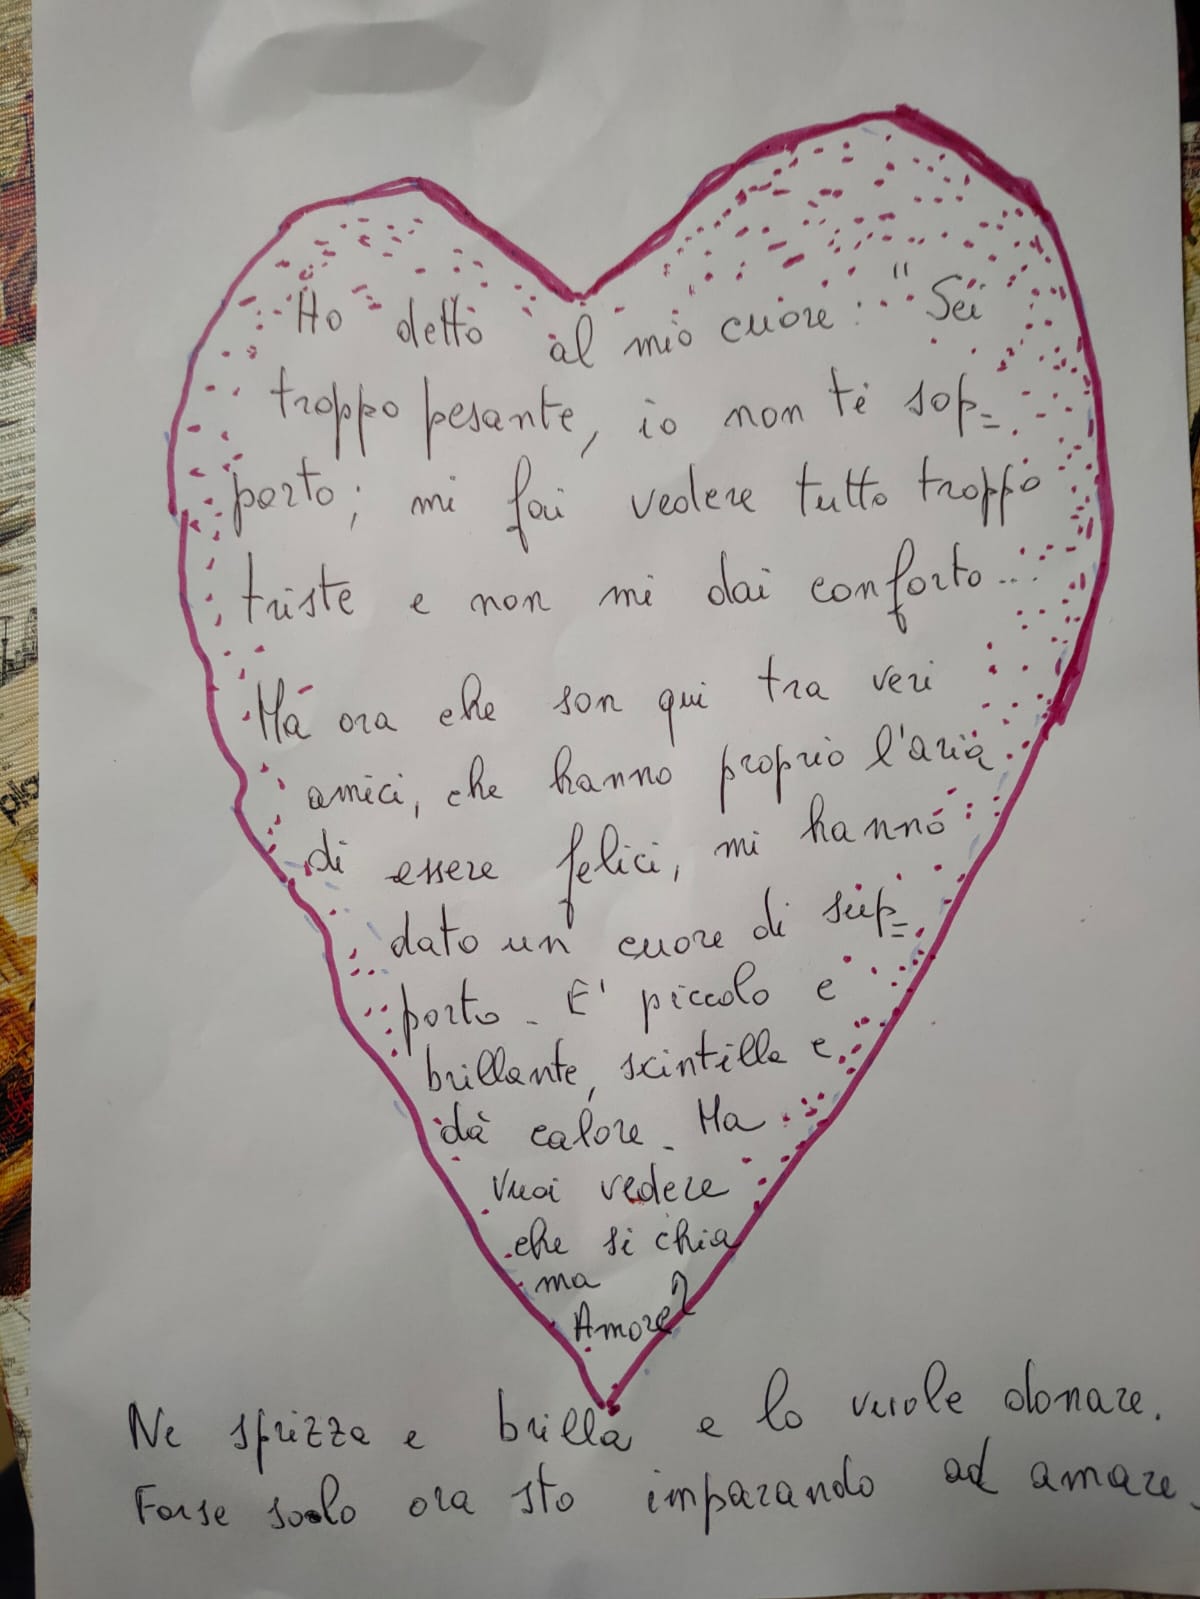 Ho detto al mio cuore: "Sei
troppo pesante, io non ti sop=
porto; mi fai vedere tutto troppo
triste e non mi dai conforto...
Ma ora che son qui tra veri
amici, che hanno proprio l'aria
di essere felici, mi hanno
dato un cuore di sup=
porto. E' piccolo e
brillante, scintilla e
dà calore. Ma
vuoi vedere
che si chia
ma
Amore?
Ne sprizza e brilla e lo vuole donare.
Forse solo ora sto imparando ad amare.